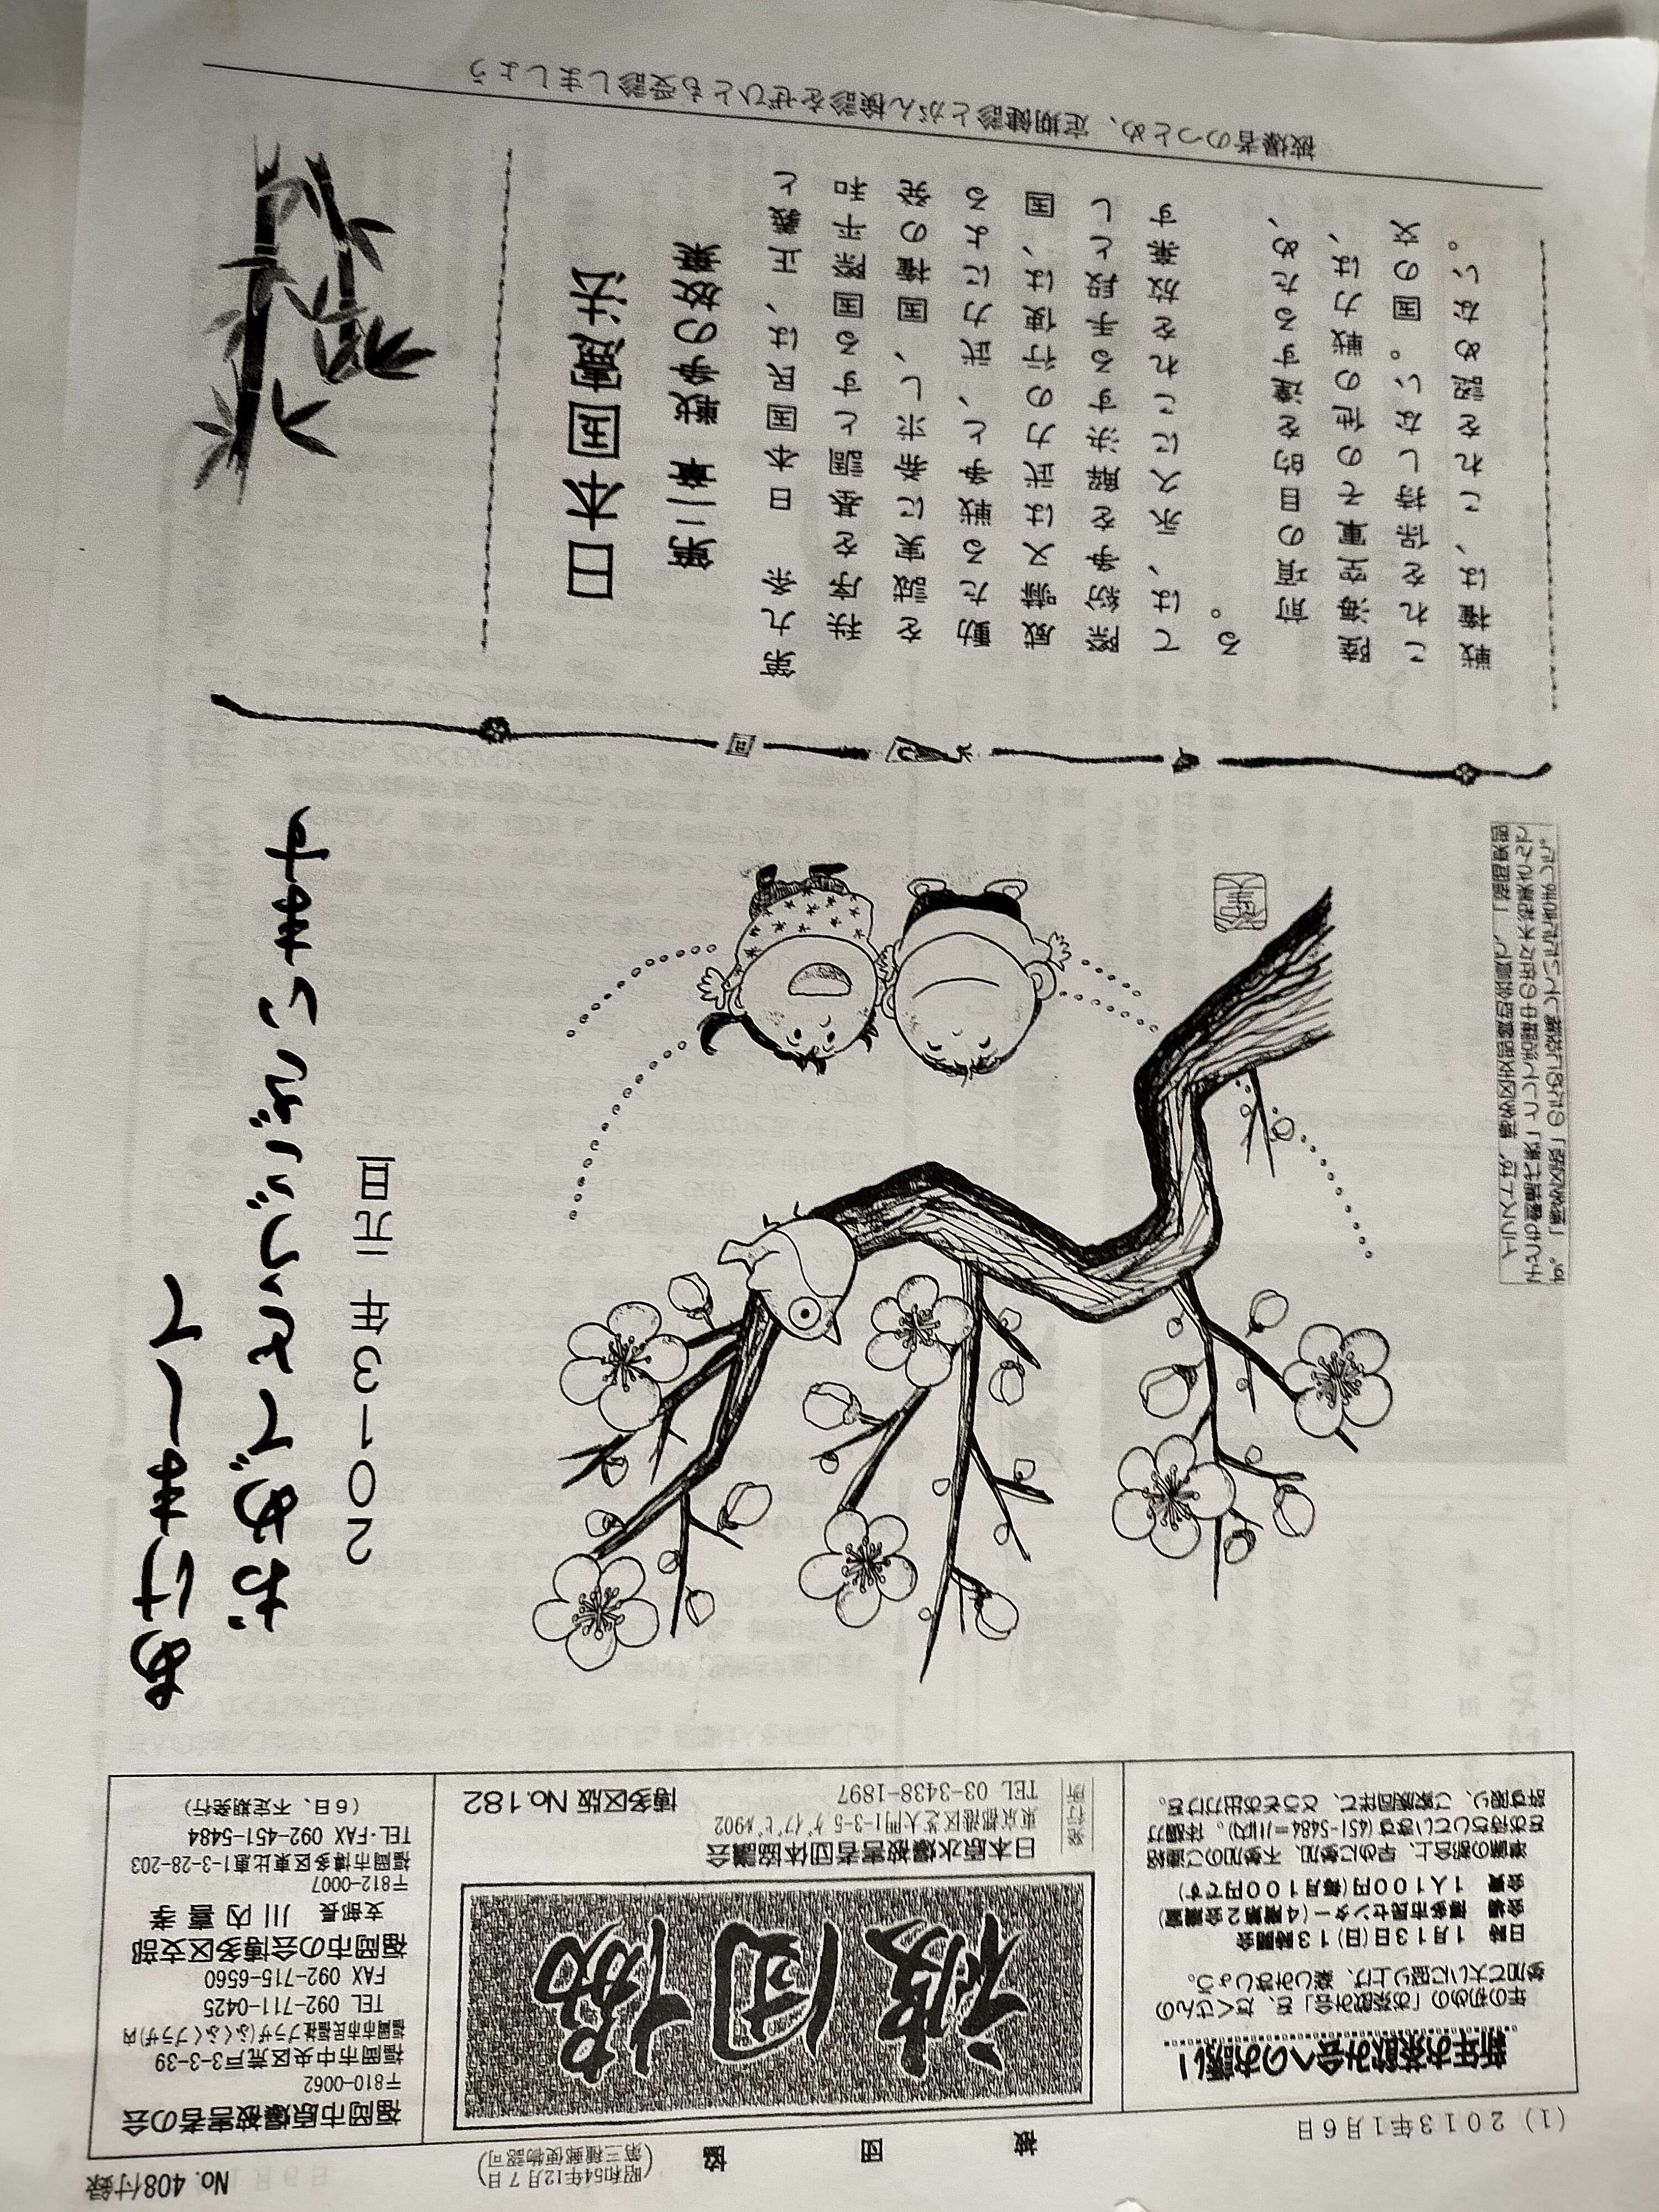 (1) 2013年1月6日
被 団 協
(昭和54年12月7日
第三種郵便物認可)
No. 408付録
新年お茶飲み会へのお誘い!
年の初めの「お茶飲み会」を、たくさんの
参加で大いに盛り上げ、楽しみましょう。
日時 1月13日(日)13時開会
会場 博多市民センター(4階第2会議室)
会費 1人100円(毎月100円です)
準備の都合上、早めに参加、不参加のご連絡
をお待ちしています(451-5484=川内)。体調が
許す限り、ご家族同伴で、どうぞお出かけを。
被団協
発行所
日本原水爆被害者団体協議会
東京都港区芝大門1-3-5 ゲイブビル902
TEL 03-3438-1897
博多区版 No.182
福岡市原爆被害者の会
〒810-0062
福岡市中央区荒戸3-3-39
福岡市市民福祉プラザ(ふくふくプラザ)内
TEL 092-711-0425
FAX 092-715-6560
福岡市の会博多区支部
支部長 川内喜孝
〒812-0007
福岡市博多区東比恵1-3-28-203
TEL・FAX 092-451-5484
(6日、不定期発行)
あけまして
おめでとうございます
2013年 元旦
日本国憲法
第二章 戦争の放棄
第九条 日本国民は、正義と
秩序を基調とする国際平和
を誠実に希求し、国権の発
動たる戦争と、武力による
威嚇又は武力の行使は、国
際紛争を解決する手段とし
ては、永久にこれを放棄す
る。
前項の目的を達するため、
陸海空軍その他の戦力は、
これを保持しない。国の交
戦権は、これを認めない。
被爆者のつとめ、定期健診とがん検診をぜひとも受診しましょう